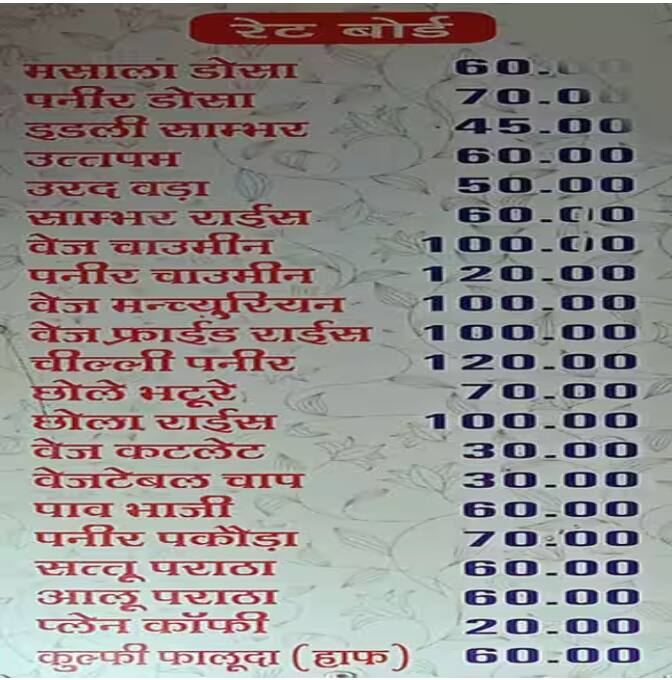 रेट बोर्ड
मसाला डोसा 60.00
पनीर डोसा 70.00
इडली साम्भर 45.00
उत्तपम 60.00
उरद वड़ा 50.00
साम्भर राईस 60.00
वेज चाउमीन 100.00
पनीर चाउमीन 120.00
वेज मन्च्युरियन 100.00
वेज फ्राईड राईस 100.00
चील्ली पनीर 120.00
छोले भटूरे 70.00
छोला राईस 100.00
वेज कटलेट 30.00
वेजटेबल चाप 30.00
पाव भाजी 60.00
पनीर पकौड़ा 70.00
सत्तू पराठा 60.00
आलू पराठा 60.00
प्लेन कॉफी 20.00
कुल्फी फालूदा (हाफ) 60.00